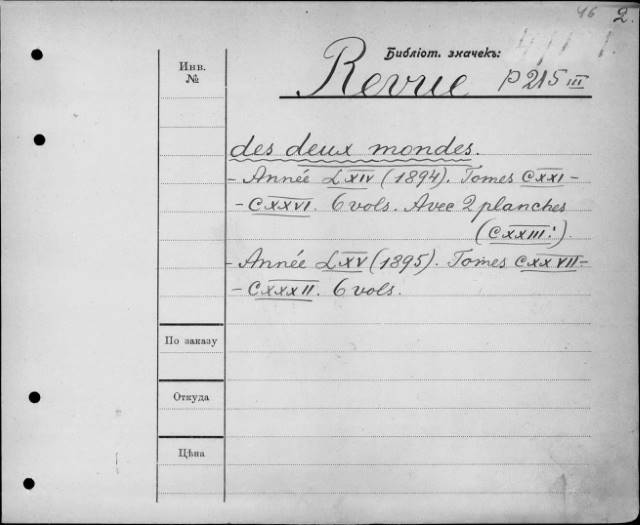 46 2.
Библіот. значекъ:
Инв.
№
Revue P 215 III
des deux mondes.
- Année LXIV (1894). Tomes CXXI -
- CXXVI. 6 vols. Avec 2 planches
(CXXIII:).
- Année LXV (1895). Tomes CXXVII -
- CXXXII. 6 vols.
По заказу
Откуда
Цѣна